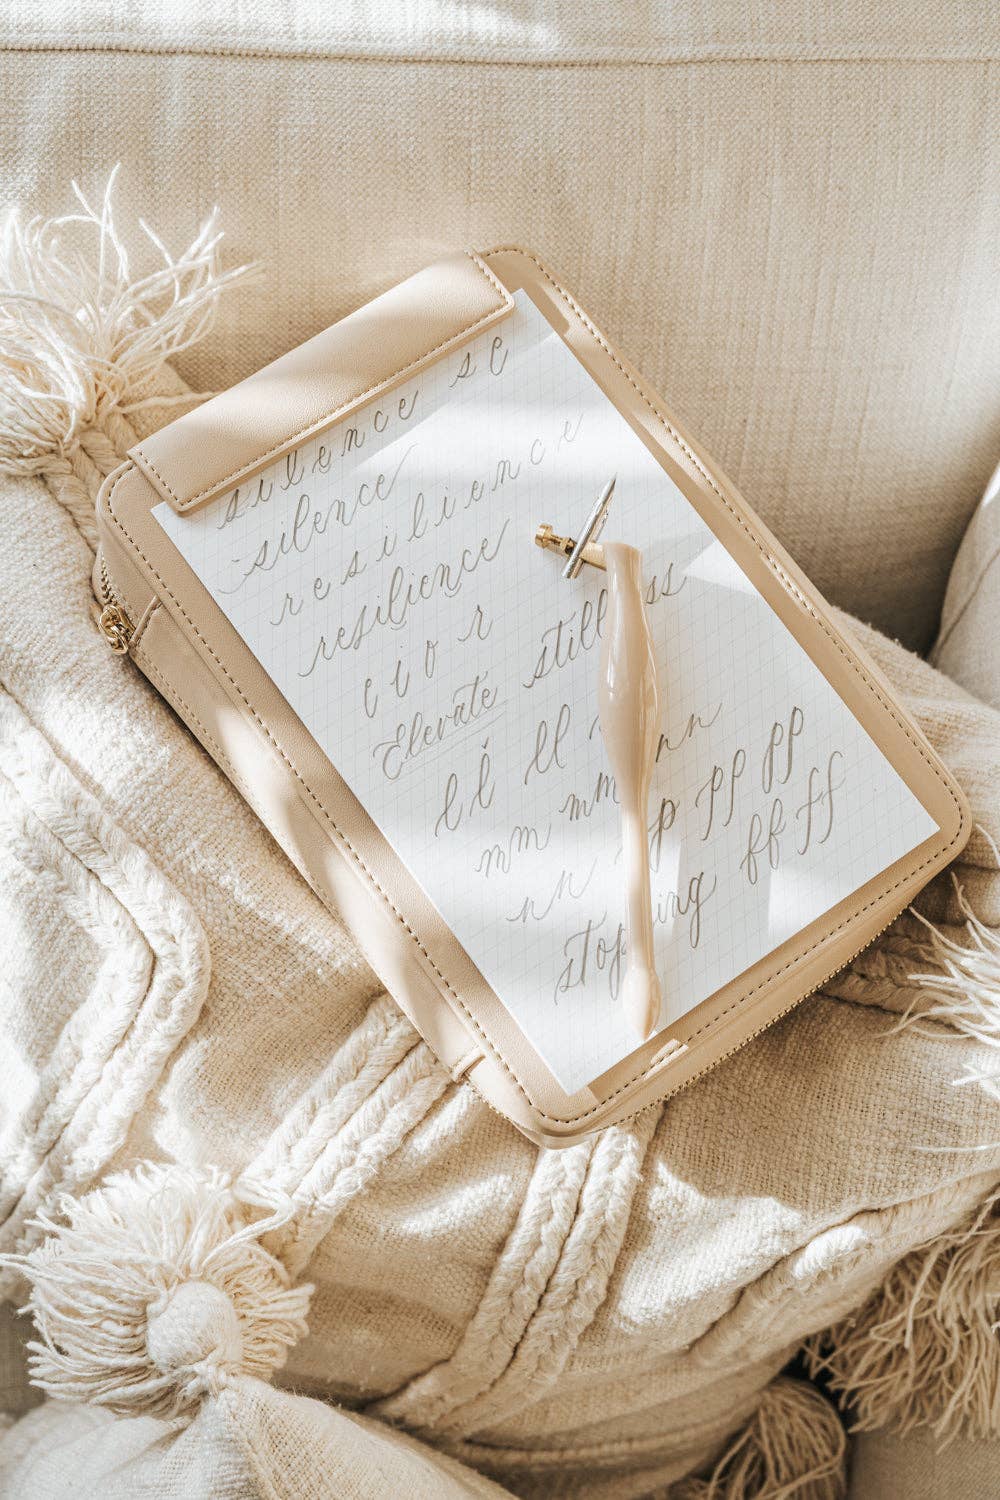 silence s e
silence
resilience
resilience
e i o r
Elevate still ss
l l ll
mm mm nn
nn p pp pp
stop ing ff ff